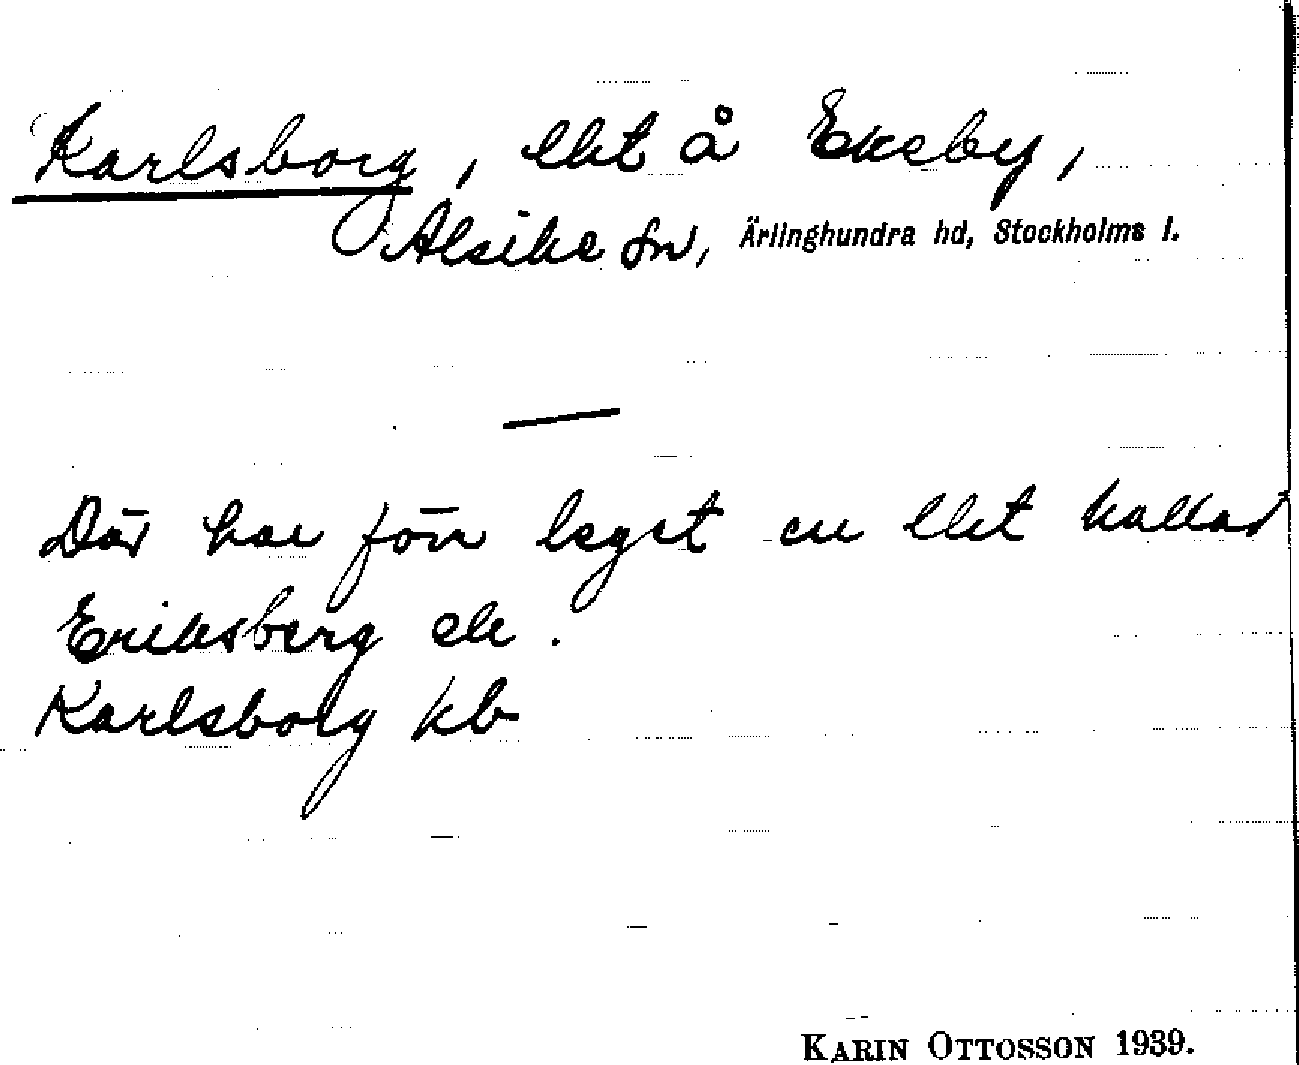 Karlsborg, lht å Ekeby,
Alsike sn, Ärlinghundra hd, Stockholms l.
Där har förr legat en lht kallad
Eriksberg ele.
Karlsborg kb
KARIN OTTOSSON 1939.